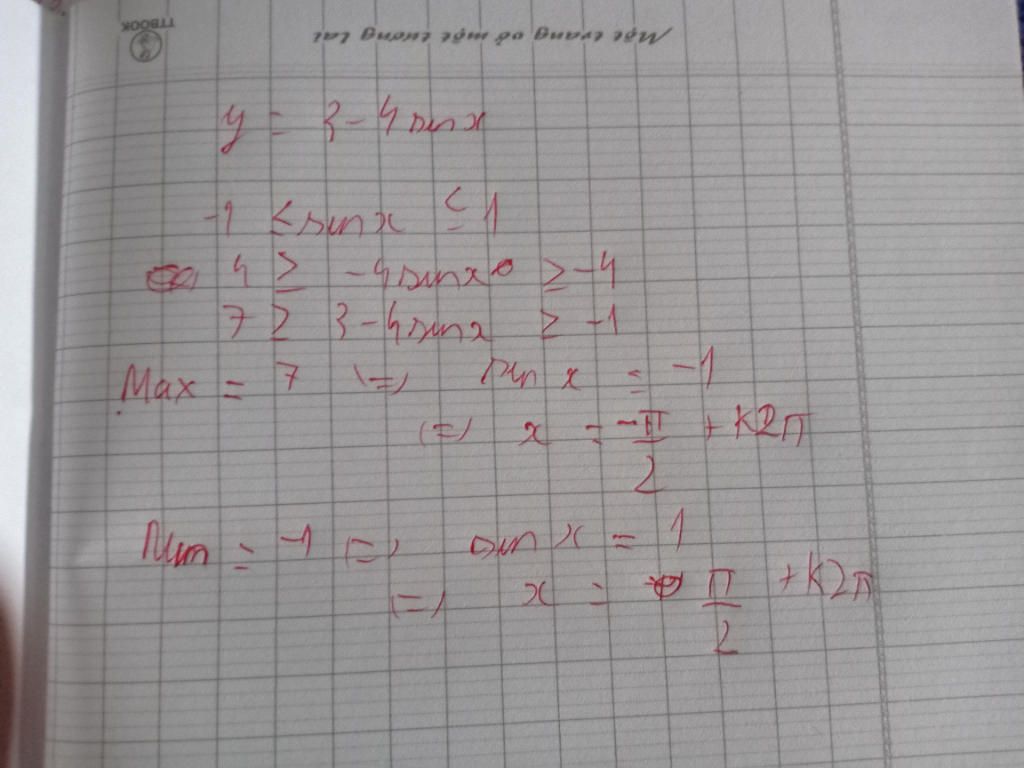 Một trang vở một tương lai
TTBOOK
y = 3 - 4 sin x
-1 ≤ sin x ≤ 1
4 ≥ -4 sin x ≥ -4
7 ≥ 3 - 4 sin x ≥ -1
Max = 7 (=) sin x = -1
(=) x = -π/2 + k2π
Min = -1 (=) sin x = 1
(=) x = π/2 + k2π